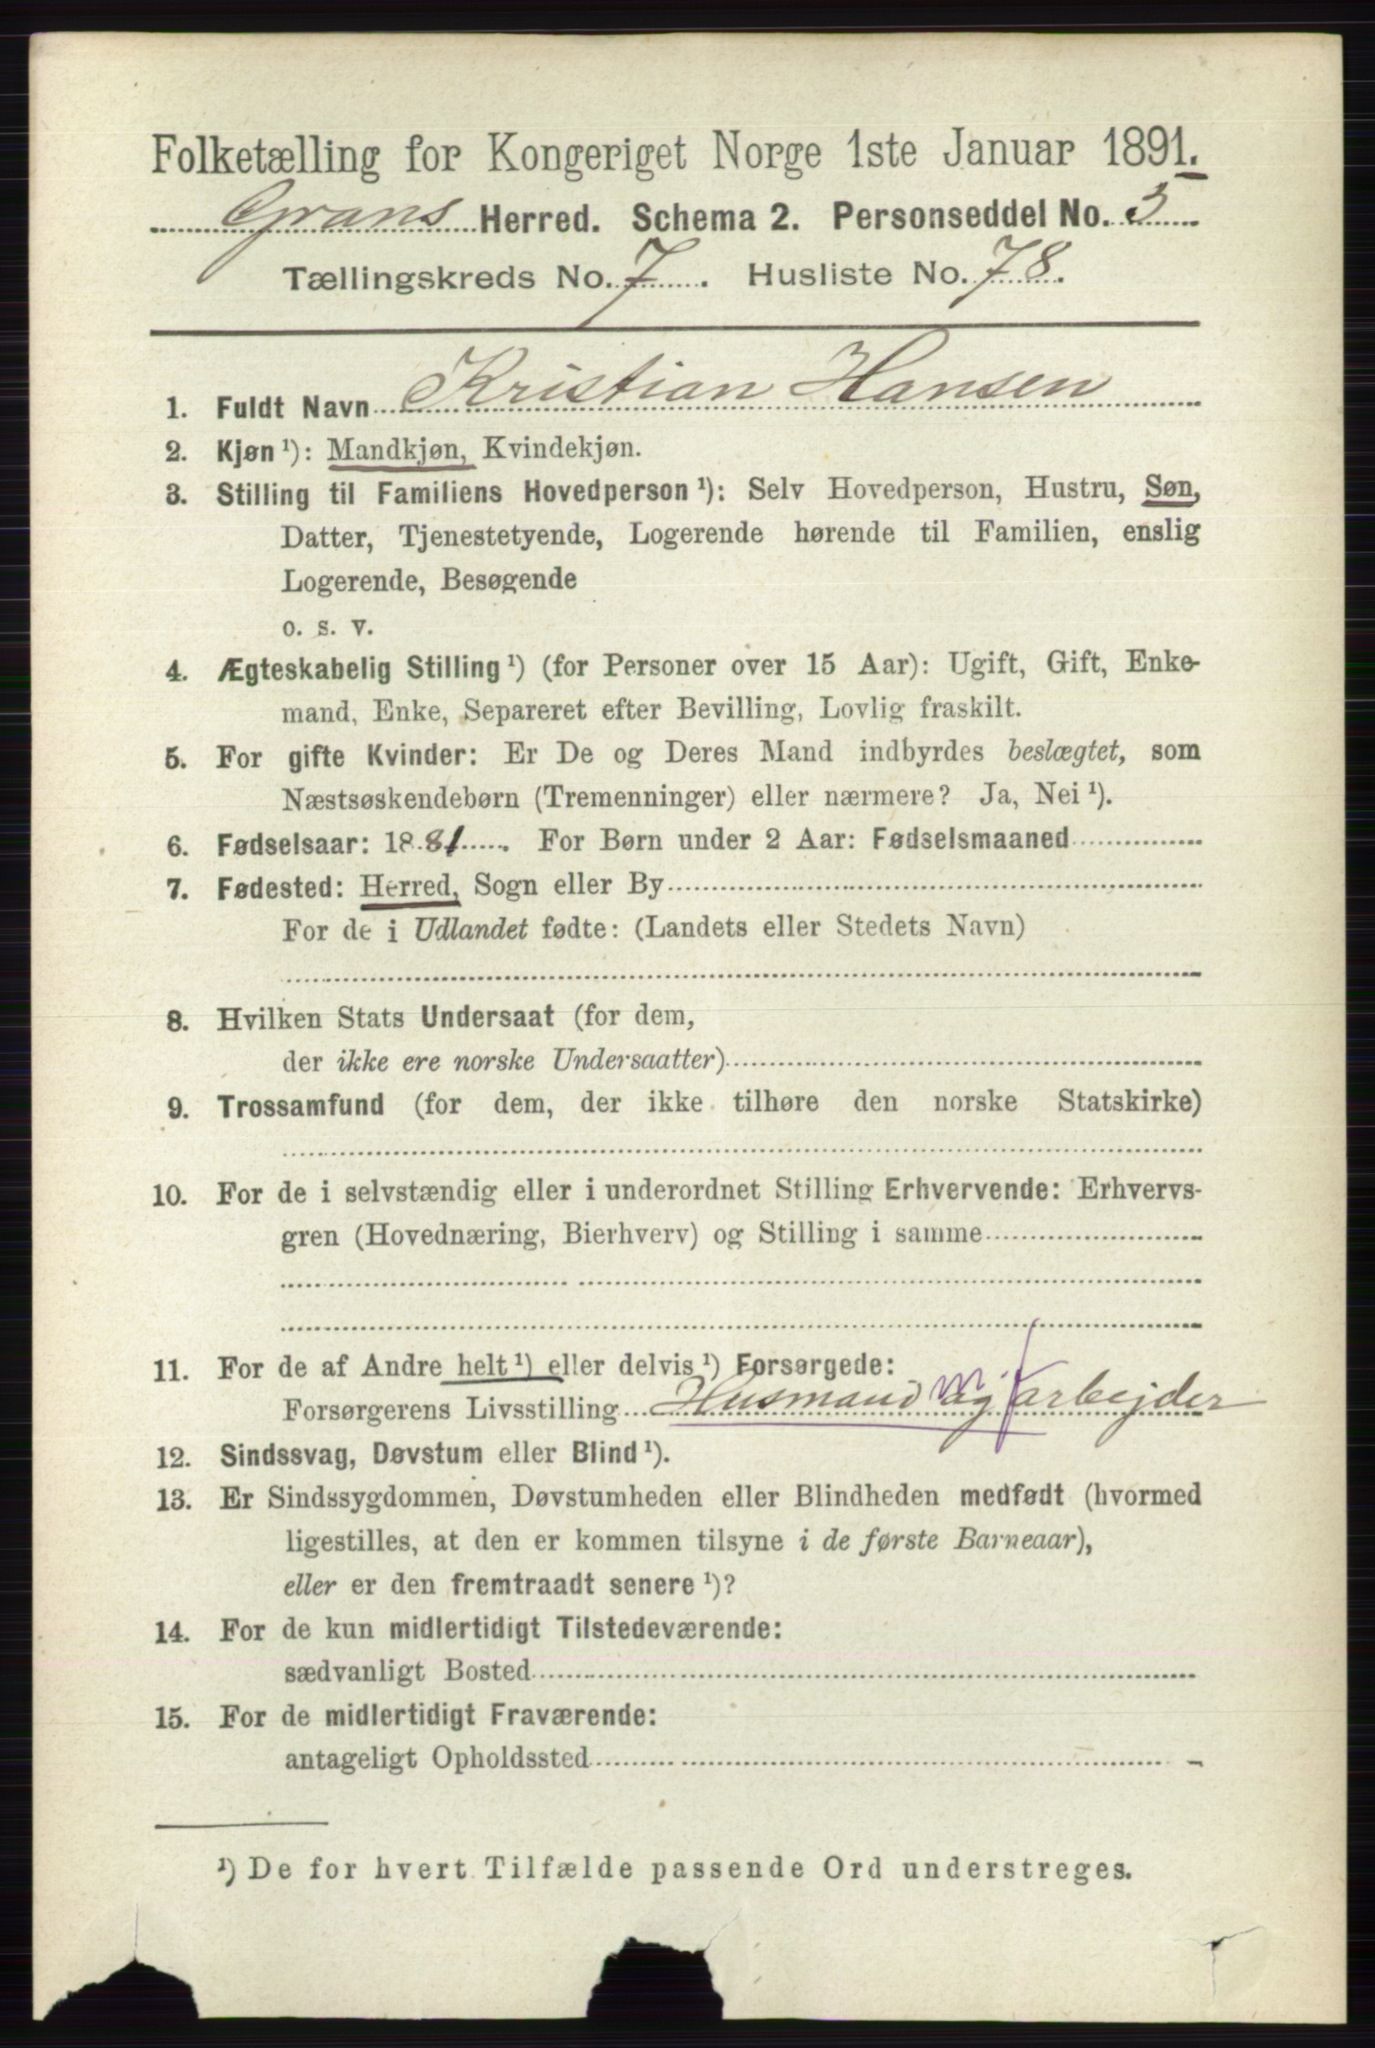 Folketælling for Kongeriget Norge 1ste Januar 1891.
Grans Herred. Schema 2. Personseddel No. 3
Tællingskreds No. 7. Husliste No. 78.
1. Fuldt Navn Kristian Hansen
2. Kjøn¹): Mandkjøn, Kvindekjøn.
3. Stilling til Familiens Hovedperson¹): Selv Hovedperson, Hustru, Søn,
Datter, Tjenestetyende, Logerende hørende til Familien, enslig
Logerende, Besøgende
o. s. v.
4. Ægteskabelig Stilling¹) (for Personer over 15 Aar): Ugift, Gift, Enke-
mand, Enke, Separeret efter Bevilling, Lovlig fraskilt.
5. For gifte Kvinder: Er De og Deres Mand indbyrdes beslægtet, som
Næstsøskendebørn (Tremenninger) eller nærmere? Ja, Nei¹).
6. Fødselsaar: 1881. For Børn under 2 Aar: Fødselsmaaned
7. Fødested: Herred, Sogn eller By
For de i Udlandet fødte: (Landets eller Stedets Navn)
8. Hvilken Stats Undersaat (for dem,
der ikke ere norske Undersaatter)
9. Trossamfund (for dem, der ikke tilhøre den norske Statskirke)
10. For de i selvstændig eller i underordnet Stilling Erhvervende: Erhvervs-
gren (Hovednæring, Bierhverv) og Stilling i samme
11. For de af Andre helt¹) eller delvis¹) Forsørgede:
Forsørgerens Livsstilling Husmand m. j. og arbejder
12. Sindssvag, Døvstum eller Blind¹).
13. Er Sindssygdommen, Døvstumheden eller Blindheden medfødt (hvormed
ligestilles, at den er kommen tilsyne i de første Barneaar),
eller er den fremtraadt senere¹)?
14. For de kun midlertidigt Tilstedeværende:
sædvanligt Bosted
15. For de midlertidigt Fraværende:
antageligt Opholdssted
¹) De for hvert Tilfælde passende Ord understreges.